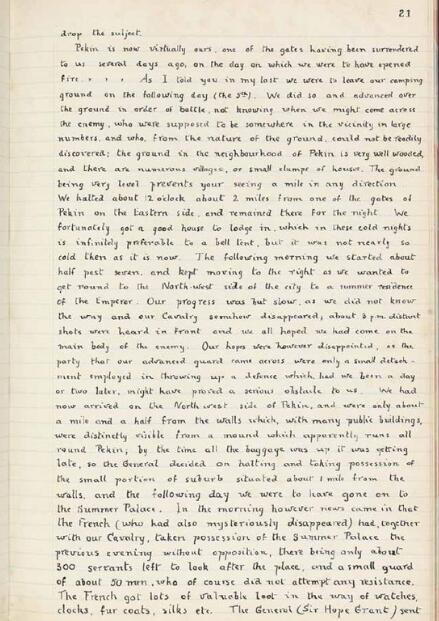 21
drop the subject.
Pekin is now virtually ours, one of the gates having been surrendered
to us several days ago, on the day on which we were to have opened
fire. , , , As I told you in my last we were to leave our camping
ground on the following day (the 5th). We did so and advanced over
the ground in order of battle, not knowing when we might come across
the enemy, who were supposed to be somewhere in the vicinity in large
numbers, and who, from the nature of the ground, could not be readily
discovered; the ground in the neighbourhood of Pekin is very well wooded,
and there are numerous villages, or small clumps of houses. The ground
being very level prevents your seeing a mile in any direction
We halted about 12 o'clock about 2 miles from one of the gates of
Pekin on the Eastern side, and remained there for the night. We
fortunately got a good house to lodge in, which in these cold nights
is infinitely preferable to a bell tent, but it was not nearly so
cold then as it is now. The following morning we started about
half past seven, and kept moving to the right as we wanted to
get round to the North-West side of the city to a summer residence
of the Emperor. Our progress was but slow, as we did not know
the way and our Cavalry somehow disappeared; about 3 p.m. distant
shots were heard in front and we all hoped we had come on the
main body of the enemy. Our hopes were however disappointed, as the
party that our advanced guard came across were only a small detach-
ment employed in throwing up a defence which, had we been a day
or two later, might have proved a serious obstacle to us. We had
now arrived on the North west side of Pekin, and were only about
a mile and a half from the walls which, with many public buildings,
were distinctly visible from a mound which apparently runs all
round Pekin; by the time all the baggage was up it was getting
late, so the General decided on halting and taking possession of
the small portion of suburb situated about 1 mile from the
walls, and the following day we were to have gone on to
the Summer Palace. In the morning however news came in that
the French (who had also mysteriously disappeared) had, together
with our Cavalry, taken possession of the Summer Palace the
previous evening without opposition, there being only about
300 servants left to look after the place, and a small guard
of about 50 men, who of course did not attempt any resistance.
The French got lots of valuable loot in the way of watches,
clocks, fur coats, silks etc. The General (Sir Hope Grant) sent